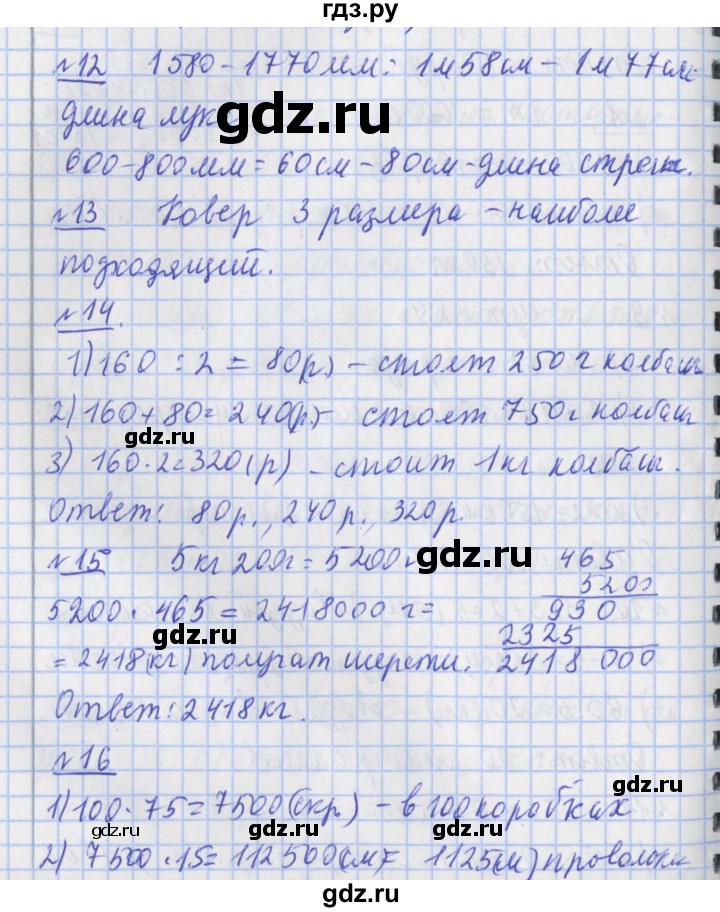 гдз.ру
№12 1580-1770мм = 1м58см - 1м77см-
длина лука
gdz.ru
600-800мм = 60см - 80см - длина стрелы.
№13 Ковер 3 размера - наиболее
подходящий.
№14.
1) 160 : 2 = 80(р) - стоят 250г колбасы
2) 160 + 80 = 240(р) - стоят 750г колбасы
gdz.ru
3) 160·2=320(р) - стоит 1кг колбасы.
Ответ: 80р., 240р., 320р.
№15 5кг 200г = 5200г
gdz.ru
465
5200
5200 · 465 = 2418000 г =
930
gdz.ru
2325
= 2418(кг) получат шерсти.
2418 000
Ответ: 2418кг.
gdz.ru
№16
1) 100 · 75 = 7500(скр.) - в 100 коробках
gdz.ru
gdz.ru
2) 7500 · 15 = 112500(см) = 1125(м) проволоки
gdz.ru